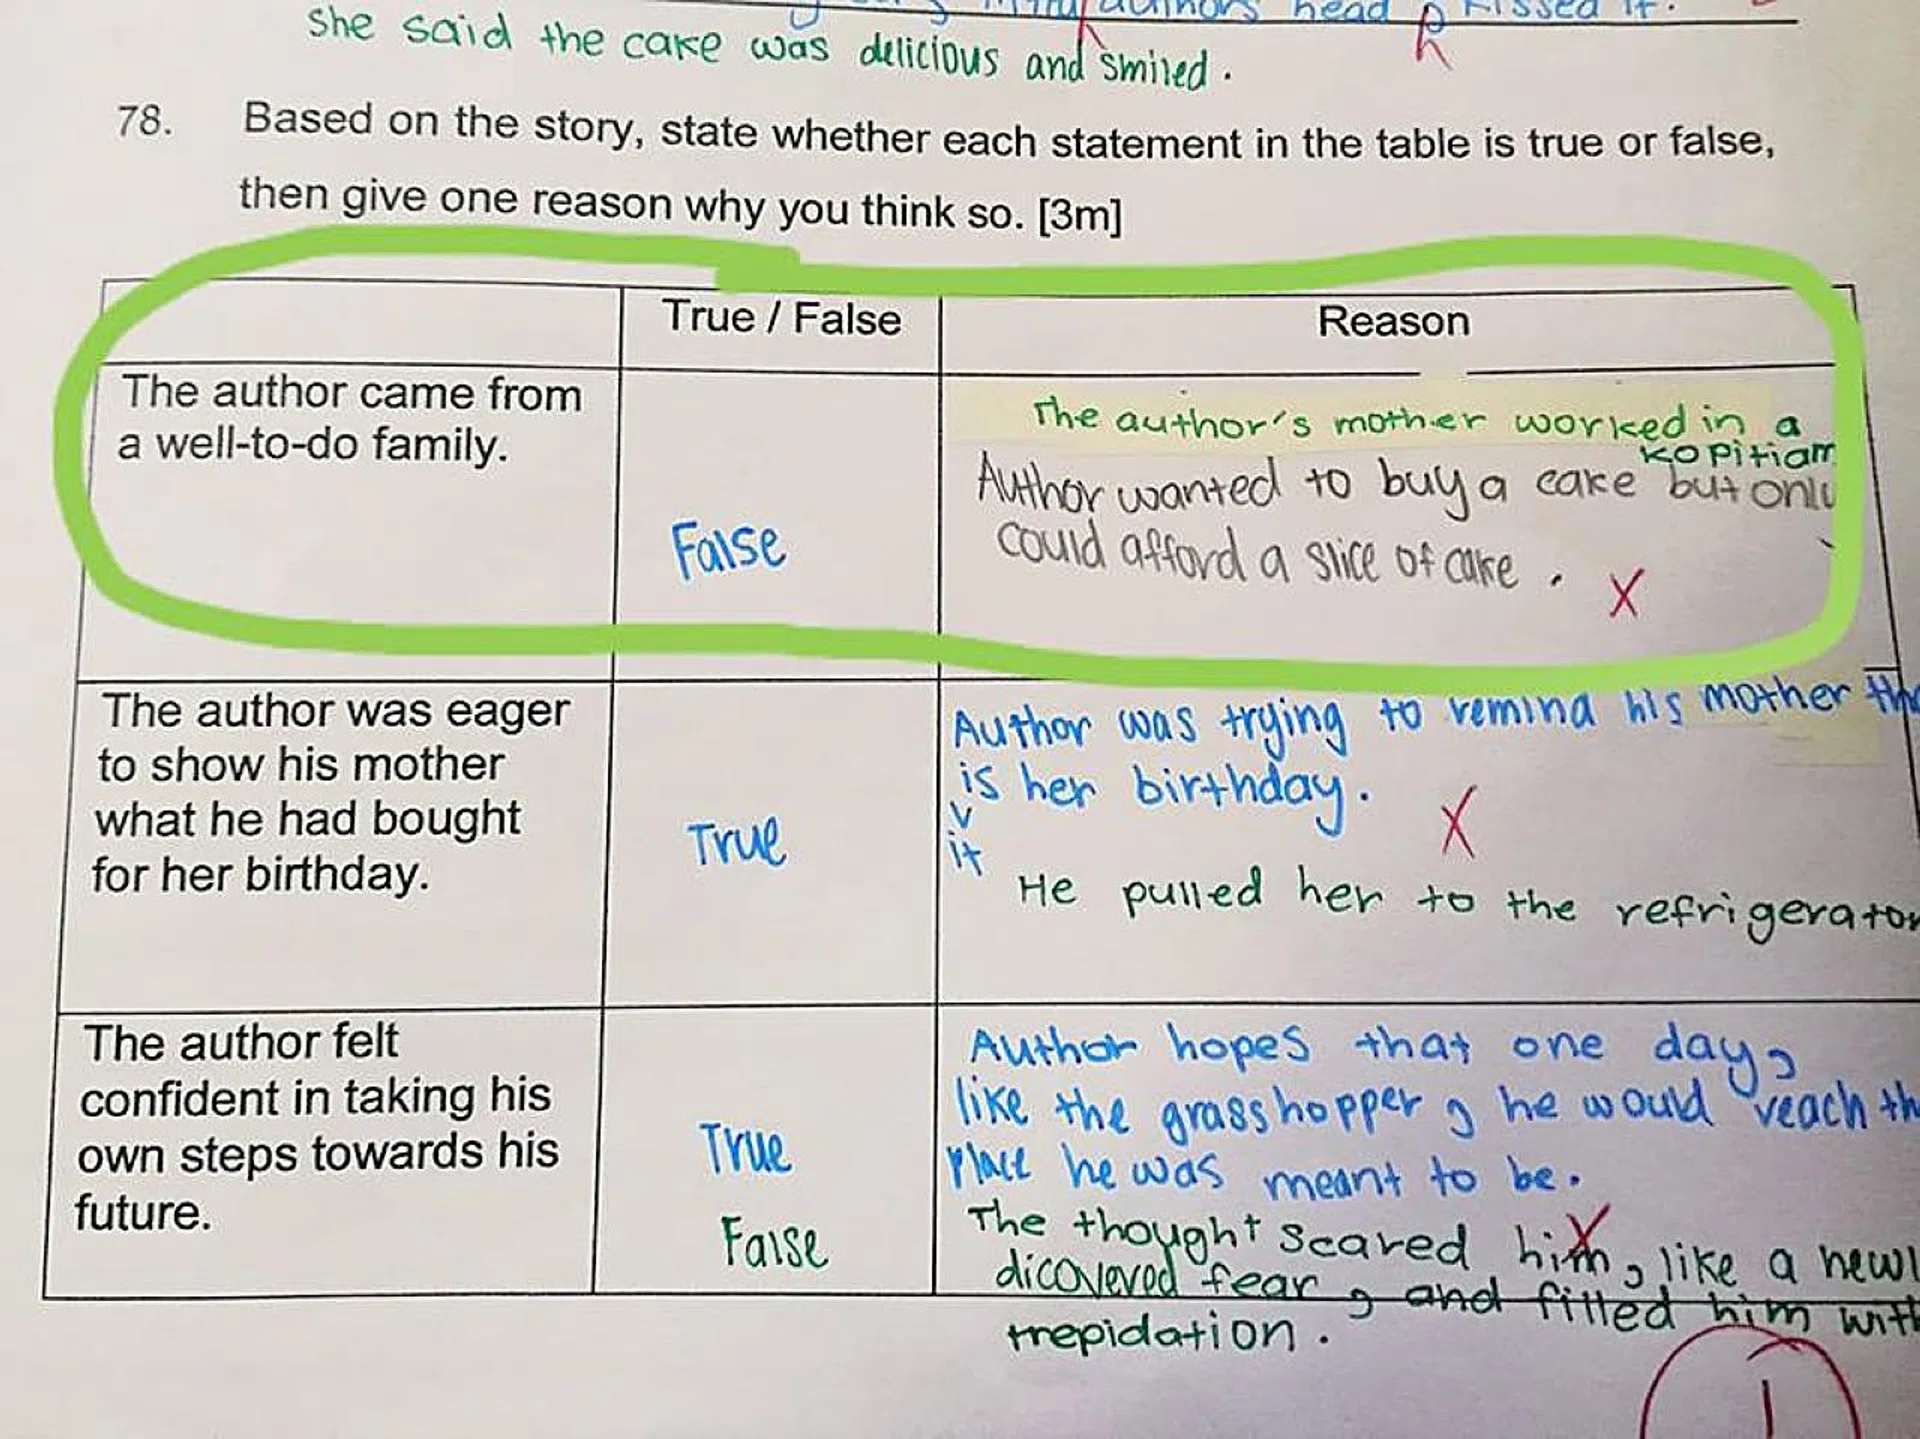 authors head & kissed it.
she said the cake was delicious and smiled.
78. Based on the story, state whether each statement in the table is true or false,
then give one reason why you think so. [3m]
True / False
Reason
The author came from
a well-to-do family.
False
The author's mother worked in a
kopitiam
Author wanted to buy a cake but only
could afford a slice of cake.
X
The author was eager
to show his mother
what he had bought
for her birthday.
True
Author was trying to remind his mother
is her birthday.
it
X
He pulled her to the refrigerator
The author felt
confident in taking his
own steps towards his
future.
True
False
Author hopes that one day,
like the grasshopper, he would reach
place he was meant to be.
The thought scared him, like a
dicovered fear, and filled him with
trepidation.
1